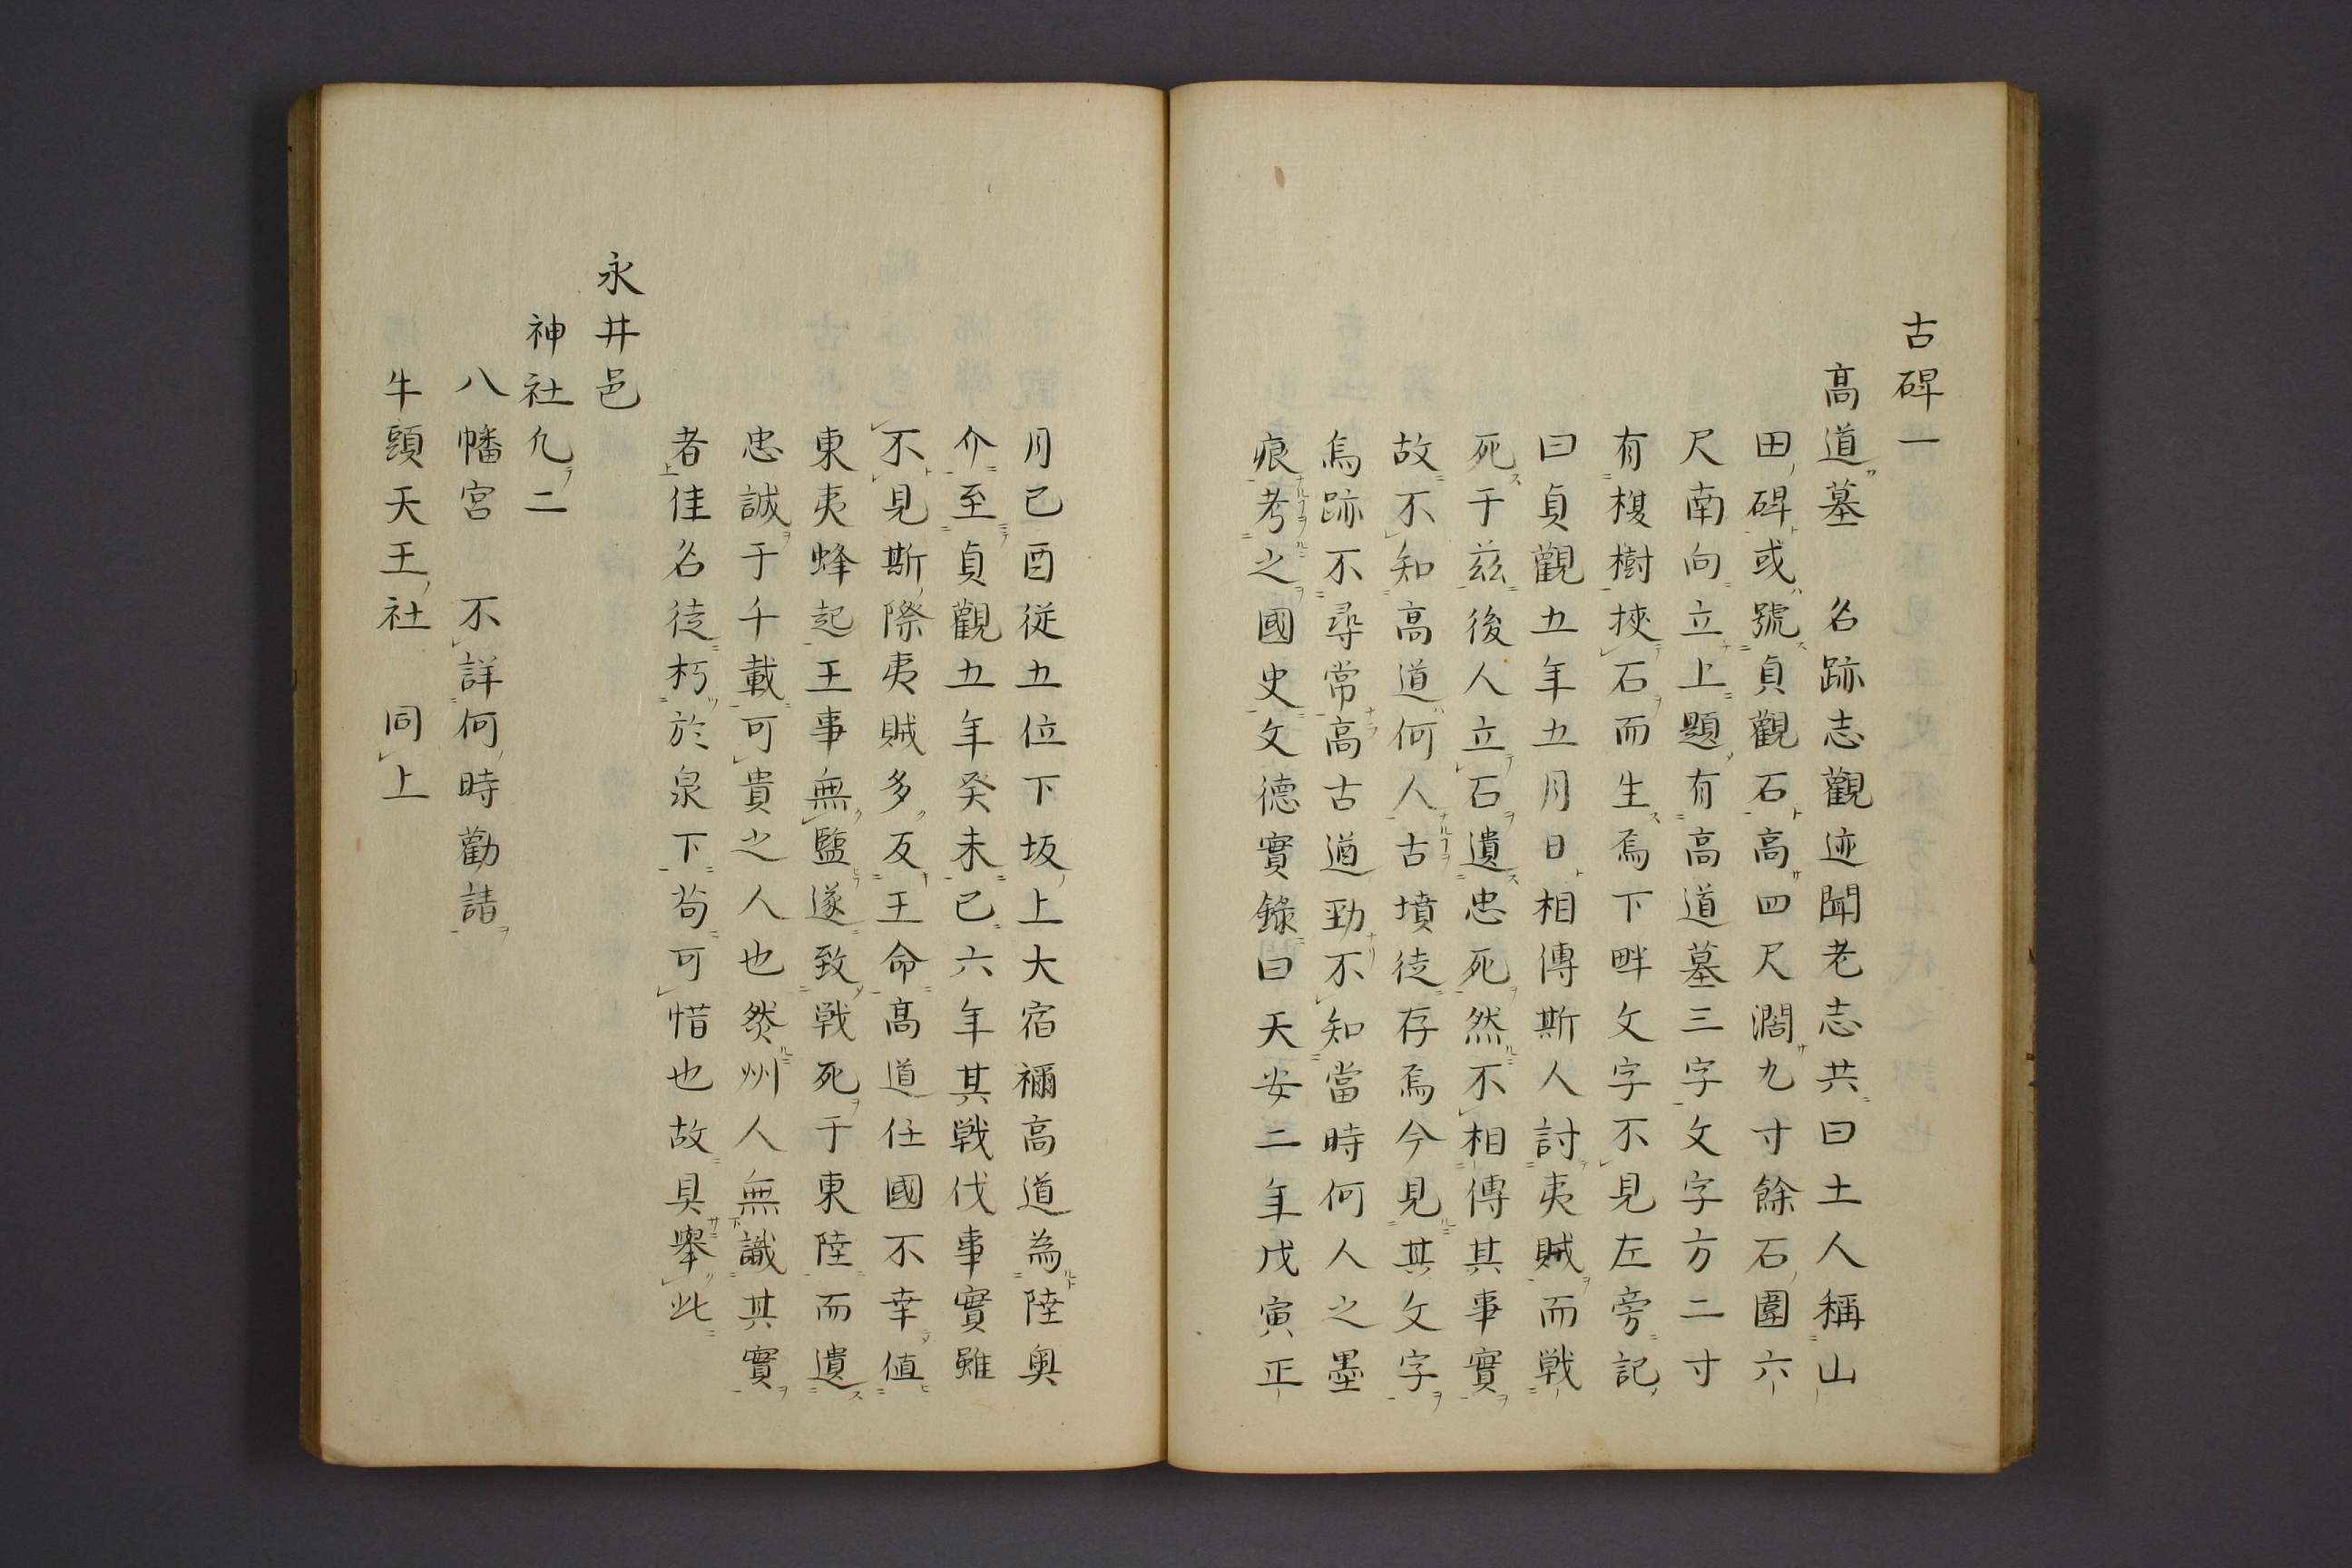 古碑一
高道墓　名跡志觀迹聞老志共曰土人稱山
田碑或號貞觀石高四尺濶九寸餘石圍六
尺南向立上題有高道墓三字文字方二寸
有榎樹挾石而生焉下畔文字不見左旁記
曰貞觀五年五月日相傳斯人討夷賊而戦
死于茲後人立石遺忠死然不相傳其事實
故不知高道何人古墳徒存焉今見其文字
焉跡不尋常高古遒勁不知當時何人之墨
痕考之國史文德實錄曰天安二年戊寅正
月己酉従五位下坂上大宿禰高道為陸奥
介至貞觀五年癸未已六年其戦伐事實雖
不見斯際夷賊多反王命高道任國不幸値
東夷蜂起王事無盬遂致戦死于東陸而遺
忠誠于千載可貴之人也然州人無識其實
者佳名徒朽於泉下苟可惜也故具舉此
永井邑
神社凢二
八幡宮　不詳何時勸請
牛頭天王社　同上